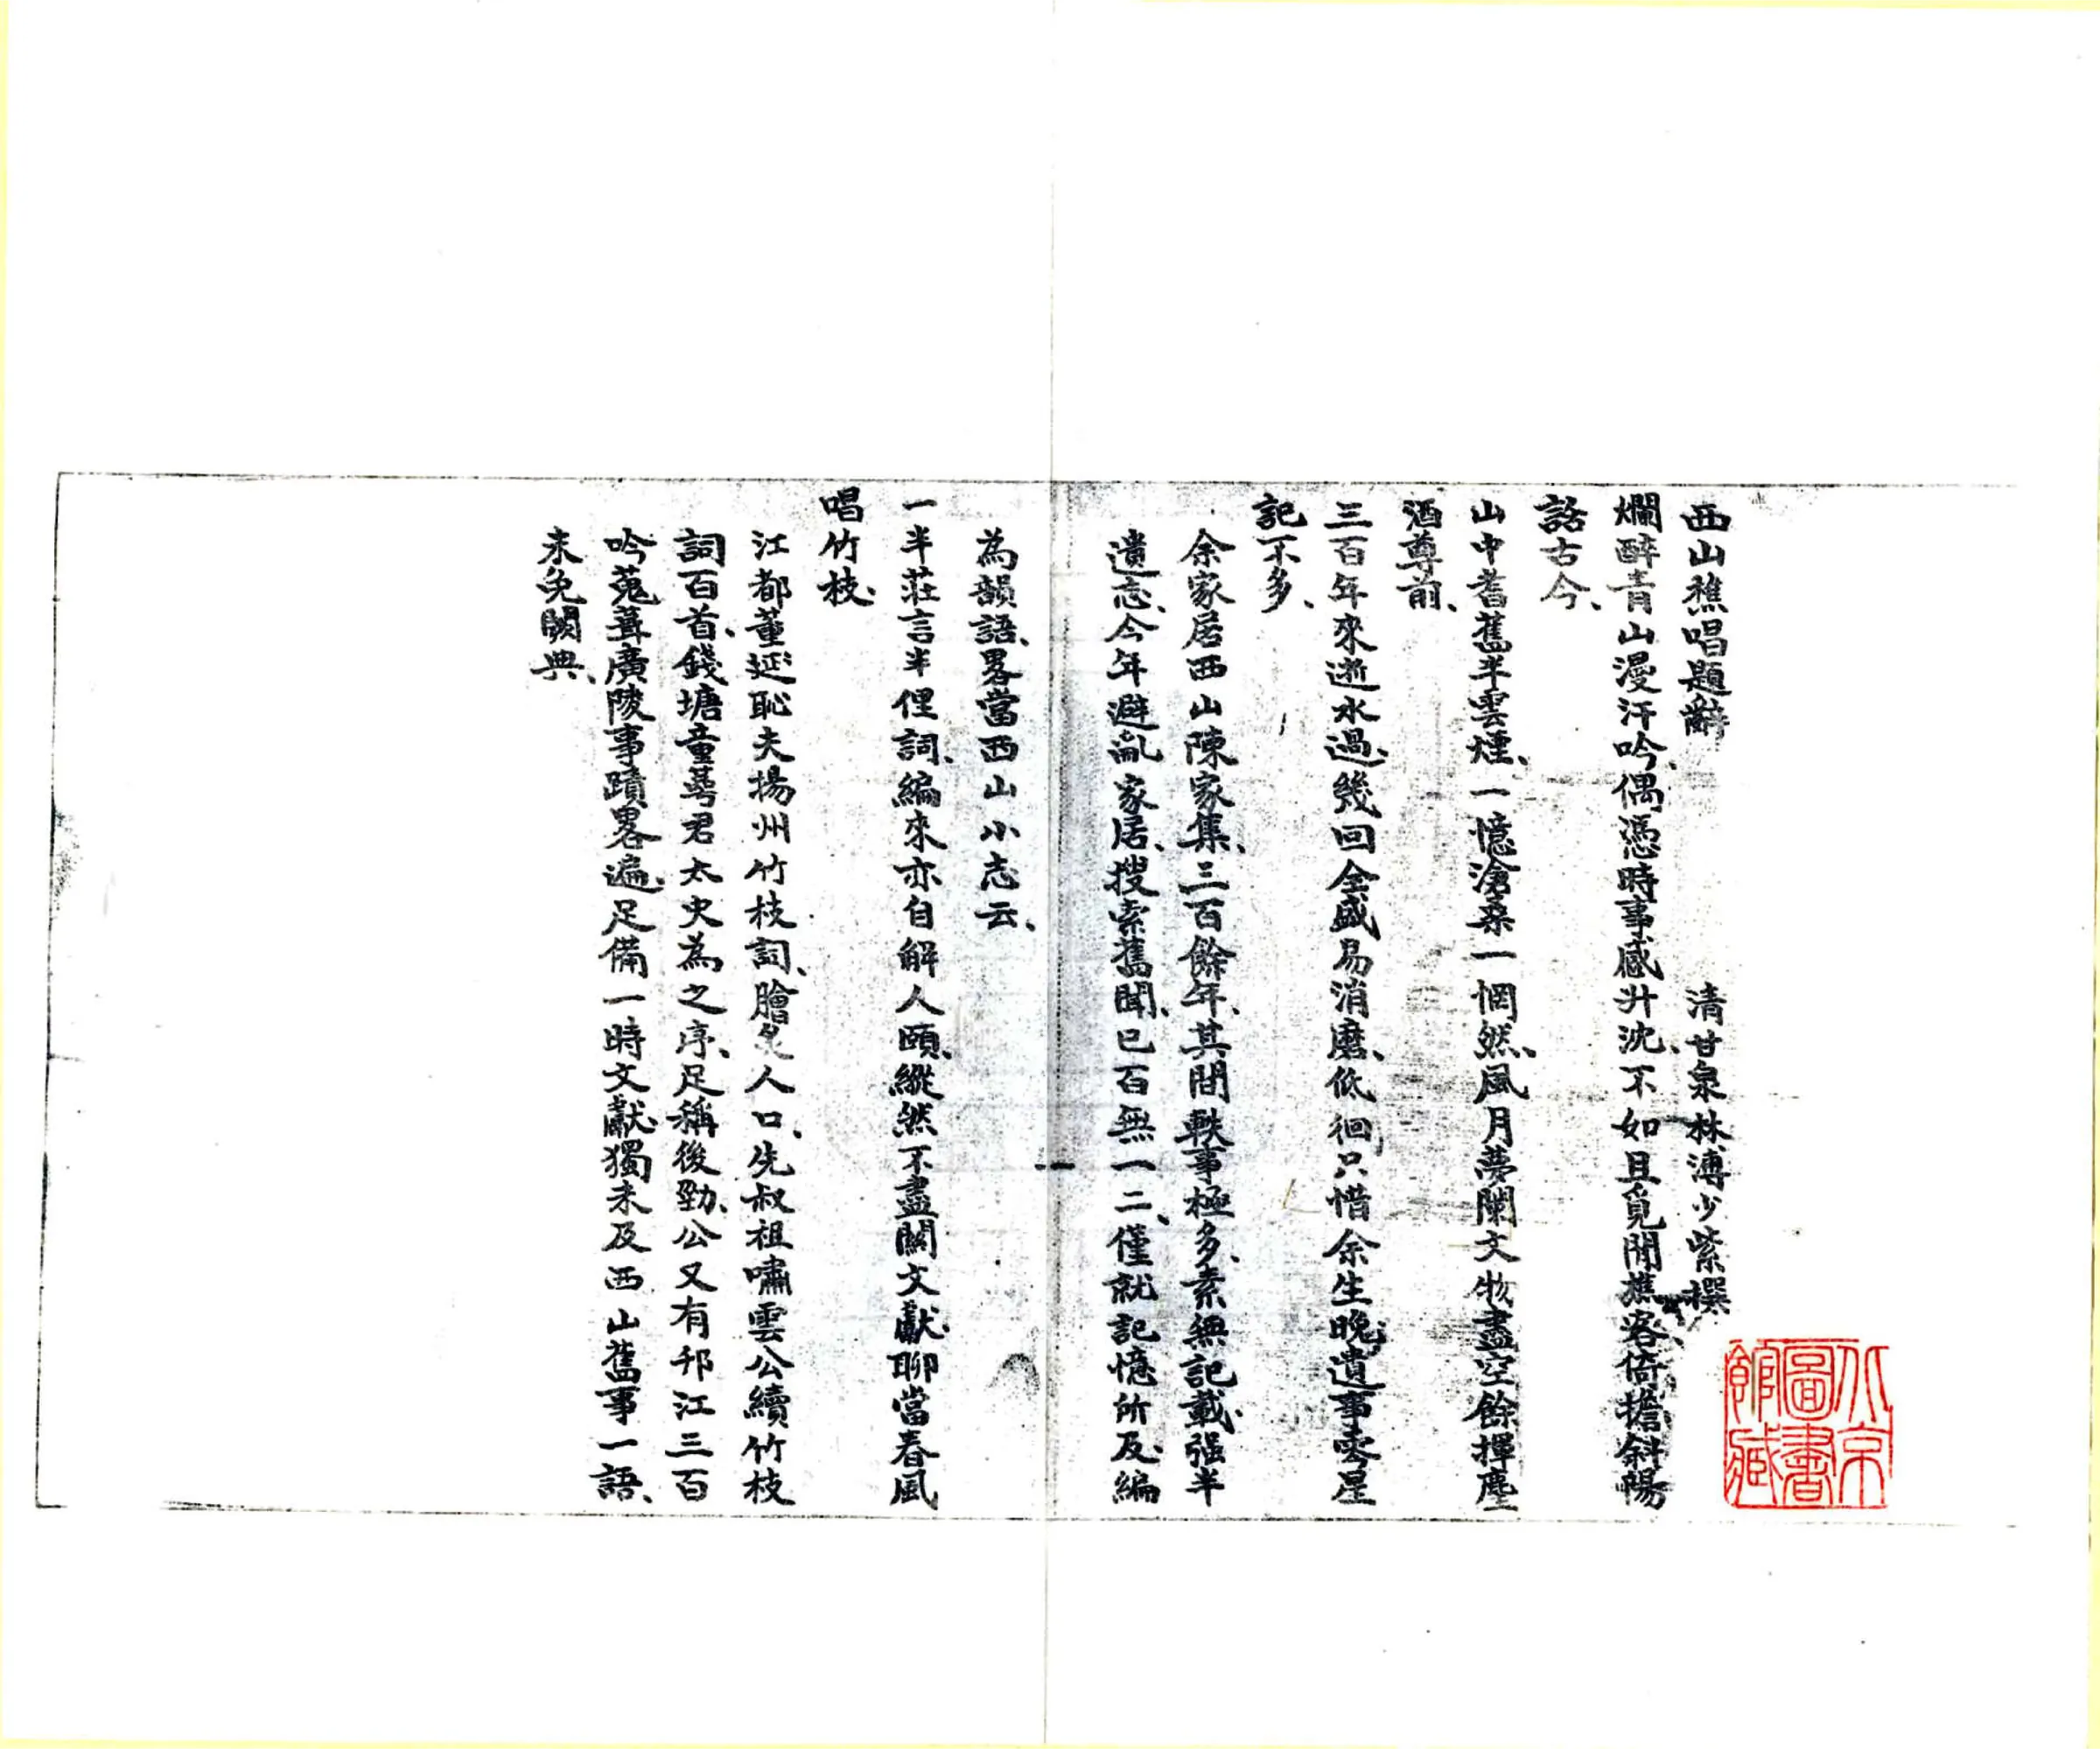 西山樵唱題辭　清甘泉林溥少紫撰
爛醉青山漫汗吟、偶憑時事感升沈、不如且覓閒樵客、倚擔斜暘
話古今、
山中耆舊半雲煙、一憶滄桑一惘然、風月夢闌文物盡、空餘揮麈
酒尊前、
三百年來逝水過、幾回全盛易消磨、低徊只惜余生晚、遺事零星
記不多、
余家居西山陳家集、三百餘年、其間軼事極多、素無記載、强半
遺忘、今年避亂家居、搜索舊聞、已百無一二、僅就記憶所及、編
為韻語、畧當西山小志云、
一半莊言半俚詞、編來亦自解人頤、縱然不盡關文獻、聊當春風
唱竹枝、
江都董恥夫揚州竹枝詞、膾炙人口、先叔祖嘯雲公續竹枝
詞百首、錢塘童萼君太史為之序、足稱後勁、公又有邗江三百
吟、蒐葺廣陵事蹟畧遍、足備一時文獻、獨未及西山舊事一語、
未免闕典、
北京
圖書
館藏